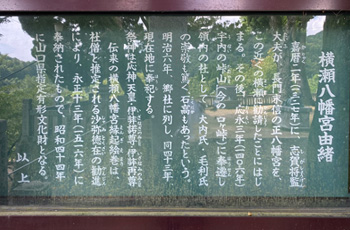 横瀬八幡宮由緒
嘉暦二年(一三二七年)に、志賀将監
大夫が、長門末信の正八幡宮を、
この近くの横瀬に勧請したことにはじ
まる。その後、応永三年(一四〇六)
宇内の崎山(今の口之峠)に奉遷し
領内の社として、大内氏、毛利氏
の崇敬も篤く石高もあったという。
明治六年、郷社に列し、同四十三年、
現在地に奉祀する。
祭神は応神天皇・伊弉諾尊・伊弉冉尊
伝来の横瀬八幡宮縁起絵巻は、
社僧と推定される沙弥徳庄の勧進
により、永正十三年(一五一六年)に
奉納されたもので、昭和四十四年
に山口県指定有形文化財となる。
以上